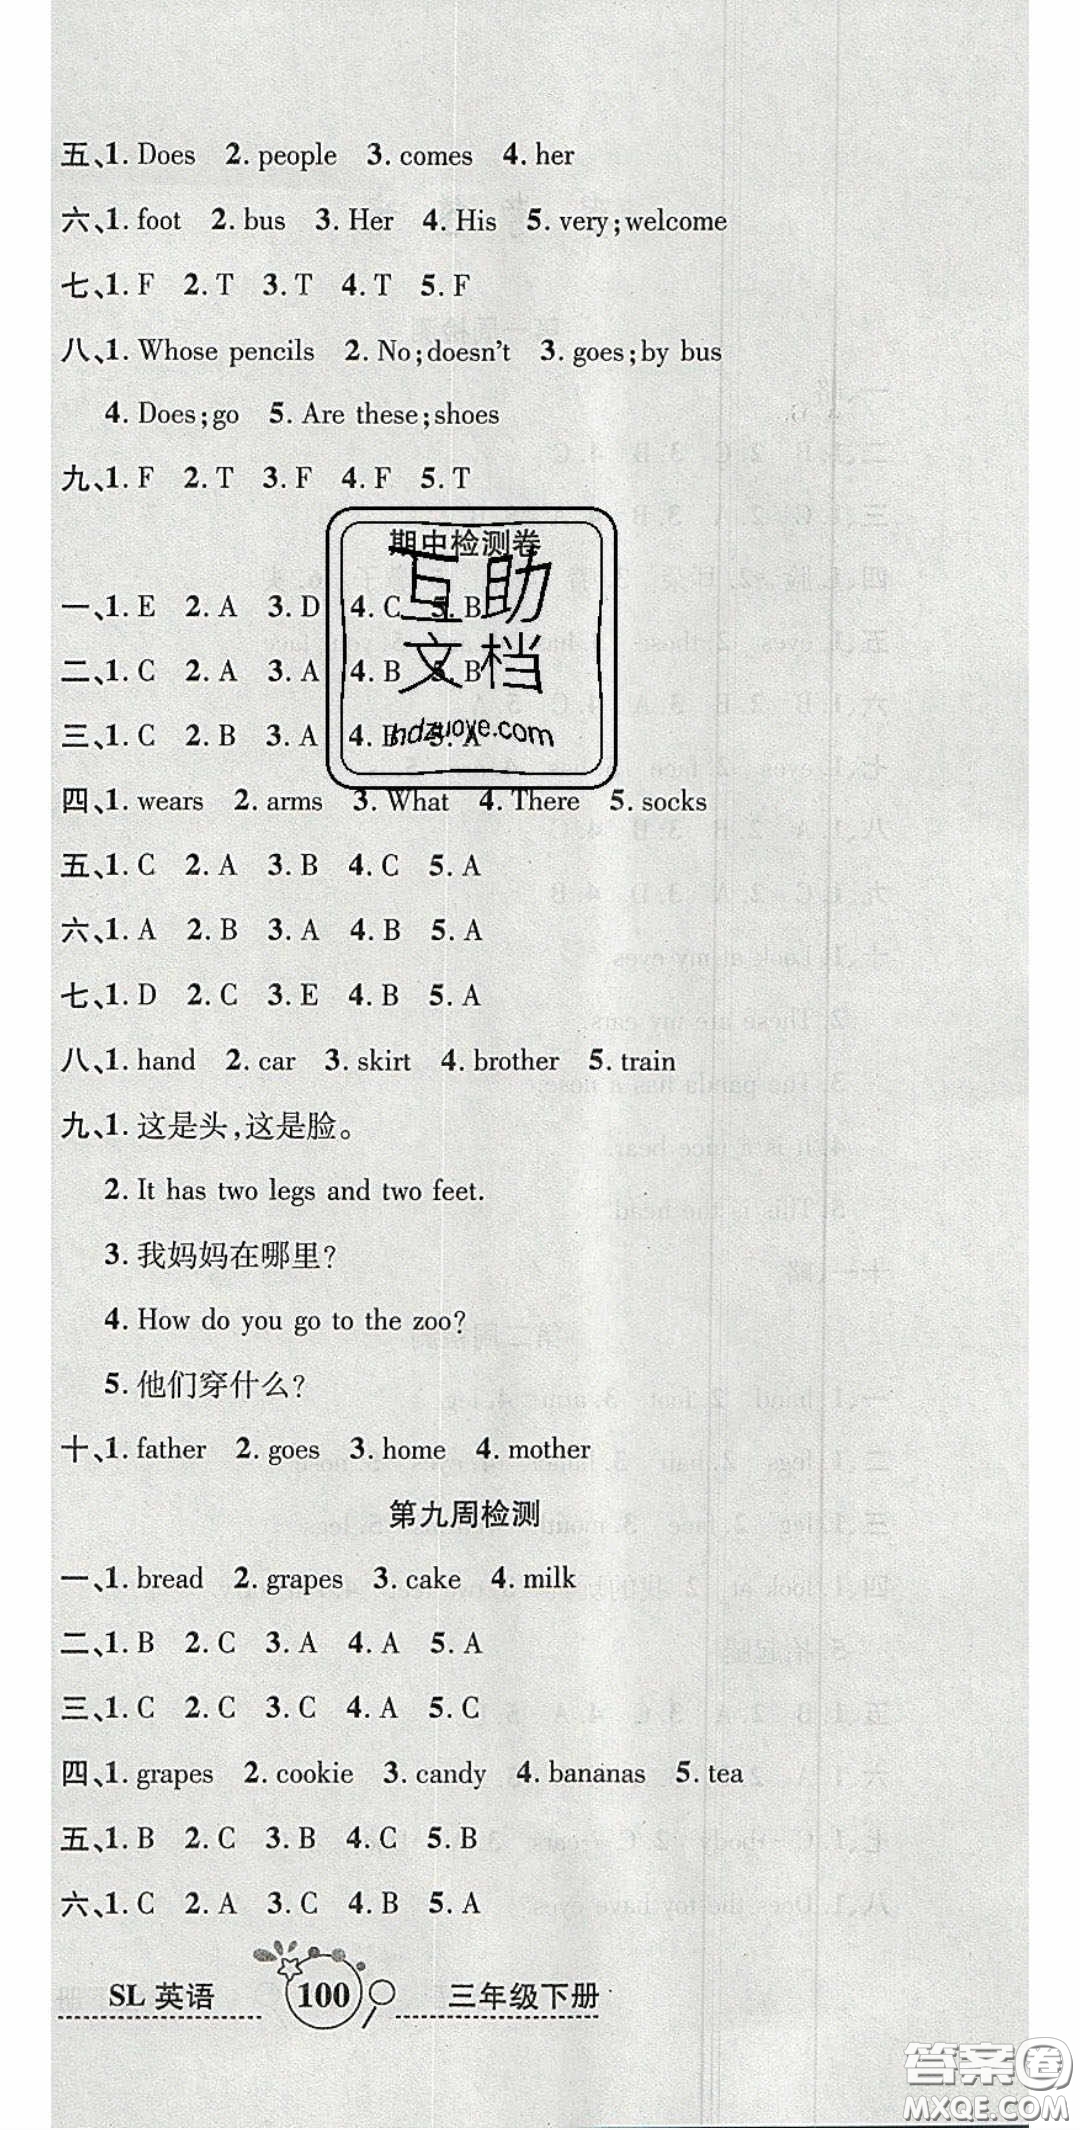 五、1. Does 2. people 3. comes 4. her
六、1. foot 2. bus 3. Her 4. His 5. very;welcome
七、1. F 2. T 3. T 4. T 5. F
八、1. Whose pencils 2. No;doesn't 3. goes;by bus
4. Does;go 5. Are these;shoes
九、1. F 2. T 3. F 4. F 5. T
期中检测卷
一、1. E 2. A 3. D 4. C 5. B
二、1. C 2. A 3. A 4. B 5. B
三、1. C 2. B 3. A 4. B 5. A
互助
文档
hdzuoye.com
四、1. wears 2. arms 3. What 4. There 5. socks
五、1. C 2. A 3. B 4. C 5. A
六、1. A 2. B 3. A 4. B 5. A
七、1. D 2. C 3. E 4. B 5. A
八、1. hand 2. car 3. skirt 4. brother 5. train
九、1. 这是头,这是脸。
2. It has two legs and two feet.
3. 我妈妈在哪里?
4. How do you go to the zoo?
5. 他们穿什么?
十、1. father 2. goes 3. home 4. mother
第九周检测
一、1. bread 2. grapes 3. cake 4. milk
二、1. B 2. C 3. A 4. A 5. A
三、1. C 2. C 3. C 4. A 5. C
四、1. grapes 2. cookie 3. candy 4. bananas 5. tea
五、1. B 2. C 3. B 4. C 5. B
六、1. C 2. A 3. C 4. B 5. A
SL 英语 100 三年级下册
答案圈
MXQE.COM